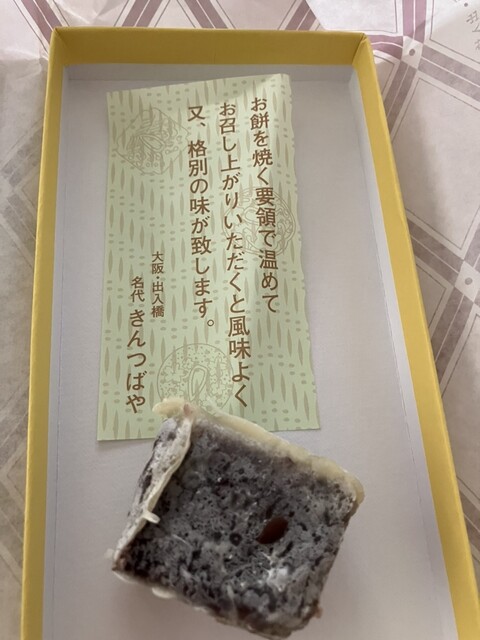 お餅を焼く要領で温めて
お召し上がりいただくと風味よく
又、格別の味が致します。
大阪・出入橋
名代 きんつばや